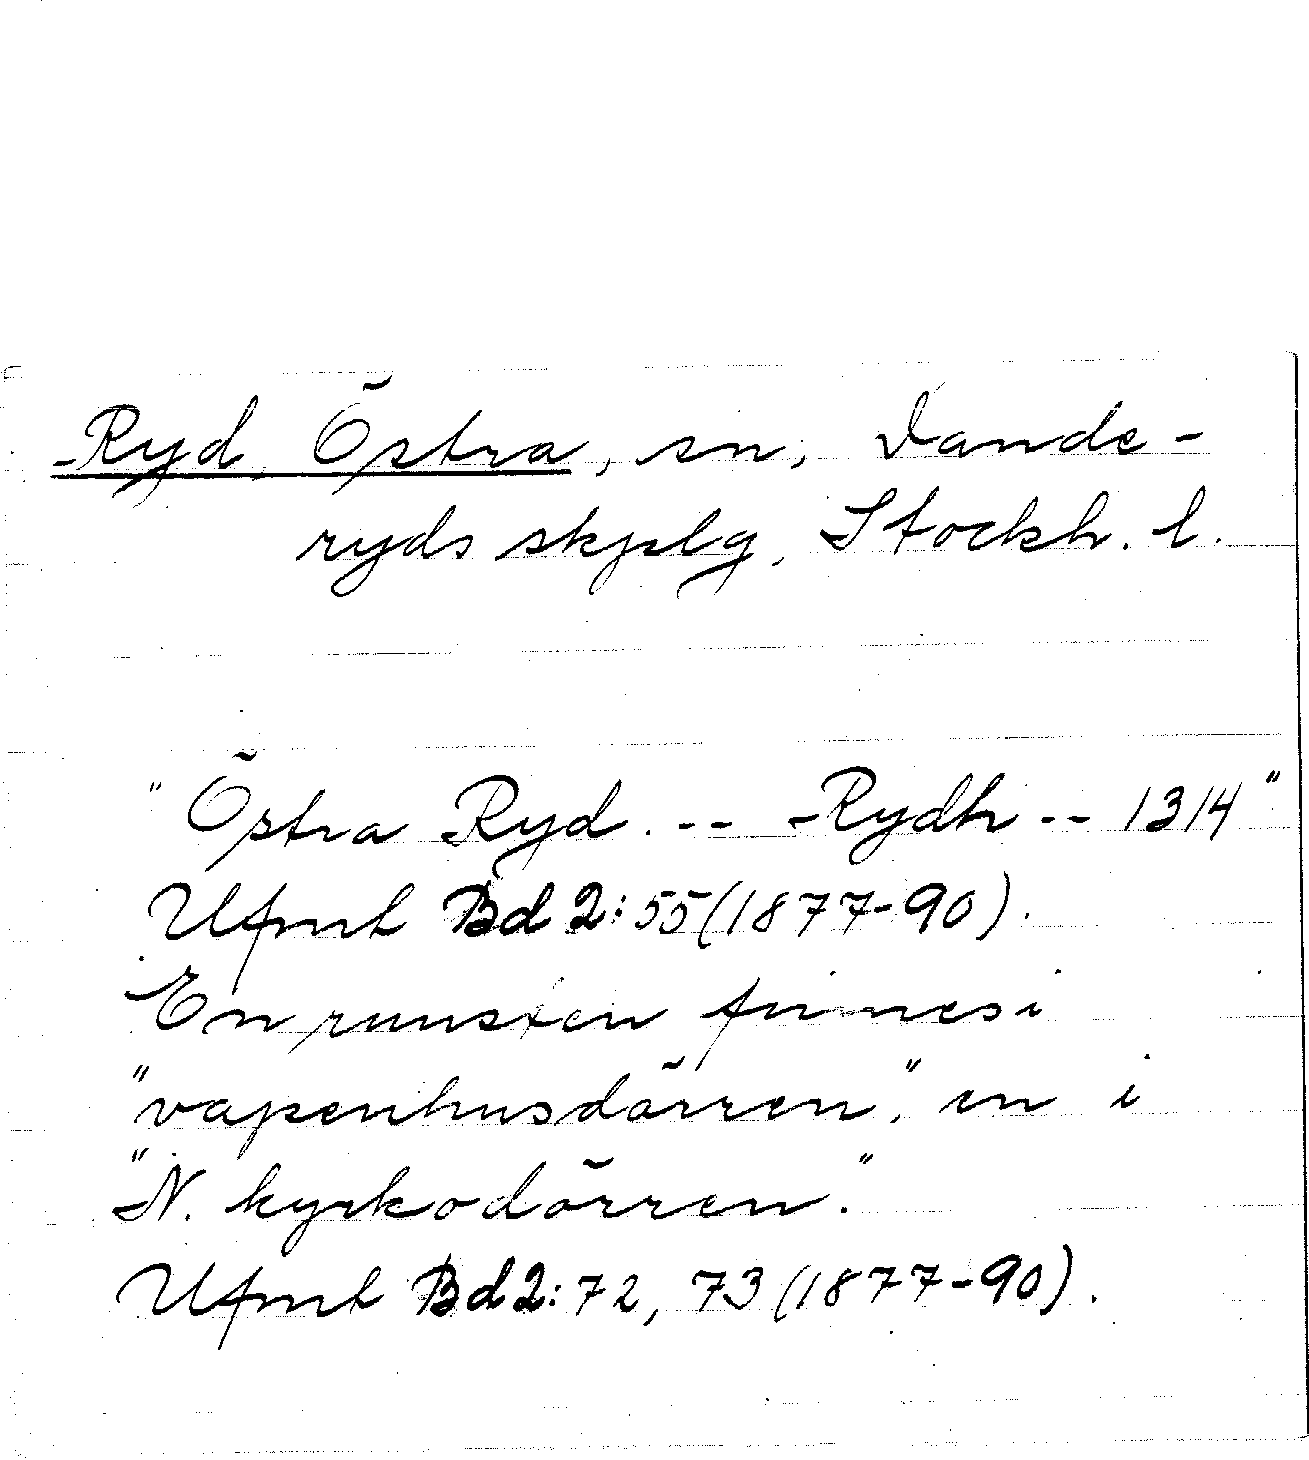 Ryd Östra, sn, Dande-
ryds skjplg, Stockh. l.
"Östra Ryd. -- Rydh -- 1314"
Ufmt Bd 2:55 (1877-90).
En runsten finnes i
"vapenhusdörren", en i
"N. kyrkodörren".
Ufmt Bd 2:72, 73 (1877-90).